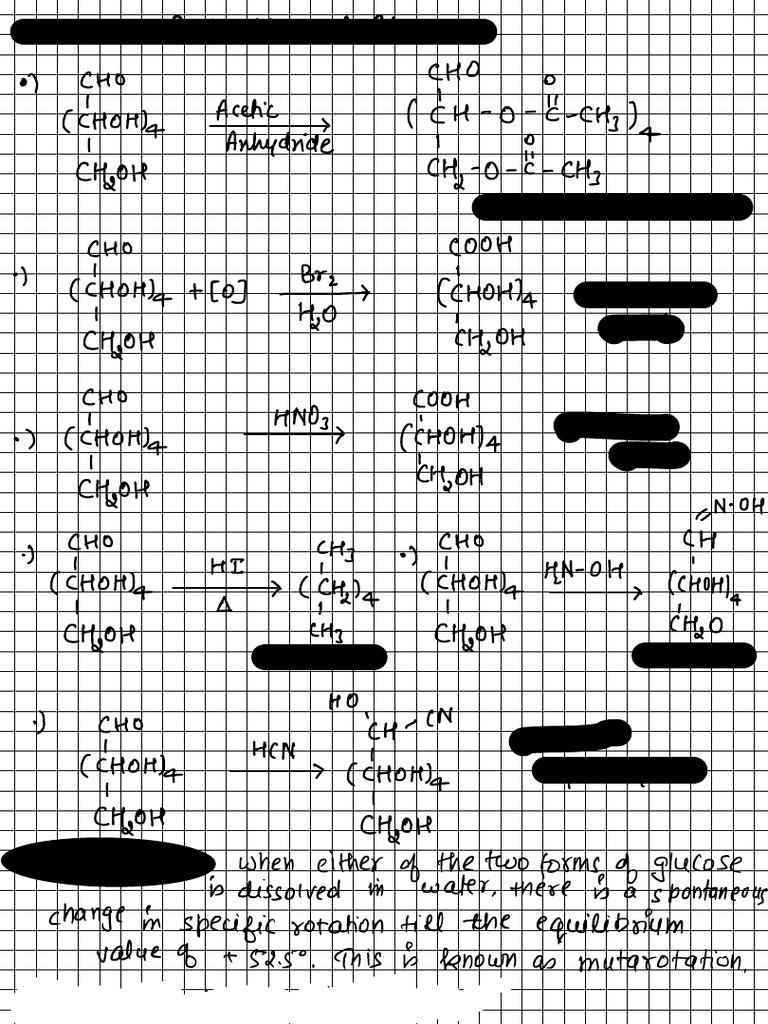 •) CHO CHO O
(CHOH)4 Acetic Anhydride (CH-O-C-CH3)4
CH2OH CH2-O-C-CH3
O
•) CHO COOH
(CHOH)4 + [O] Br2 H2O (CHOH)4
CH2OH CH2OH
•) CHO COOH
(CHOH)4 HNO3 (CHOH)4
CH2OH CH2OH
•) CHO CH3
(CHOH)4 HI Δ (CH2)4
CH2OH CH3
•) CHO CH=N·OH
(CHOH)4 H2N-OH (CHOH)4
CH2OH CH2O
•) CHO HO CH-CN
(CHOH)4 HCN (CHOH)4
CH2OH CH2OH
when either of the two forms of glucose
is dissolved in water, there is a spontaneous
change in specific rotation till the equilibrium
value of + 52.5°. This is known as mutarotation.